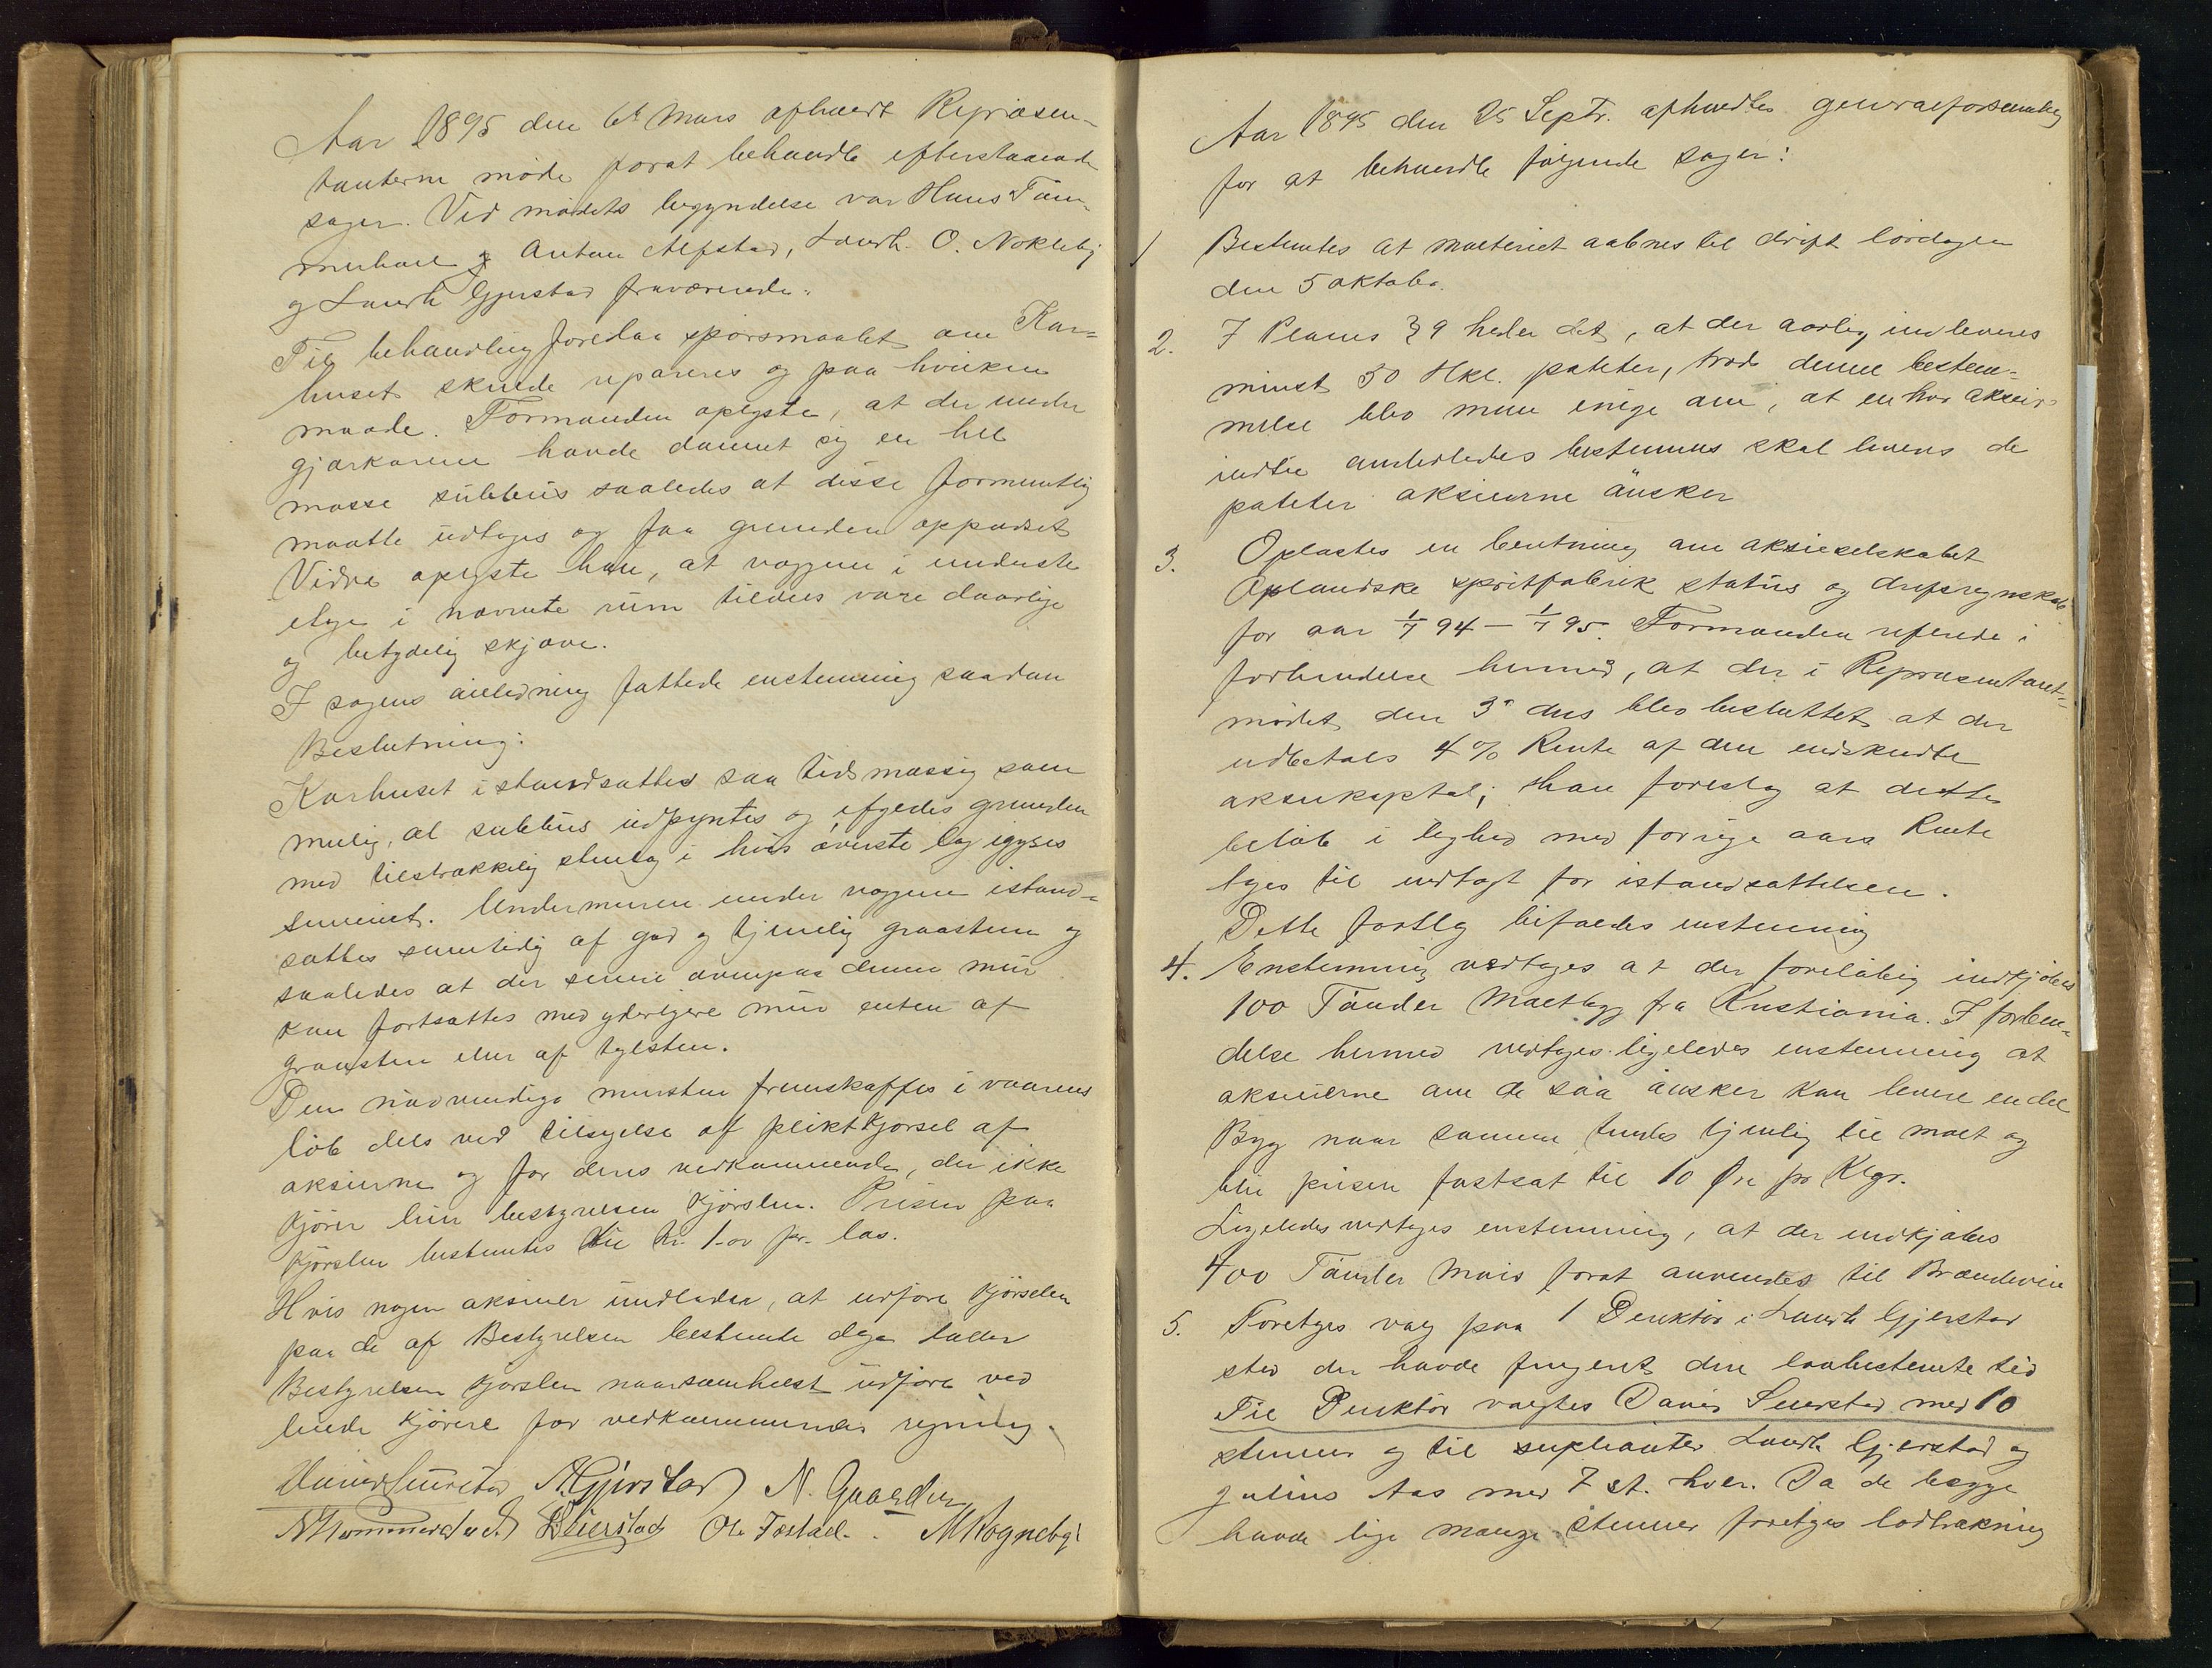 Aar 1895 den 6te Mars afholdt Repræsen-
tanterne møde forat behandle efterstaaende
sager. Ved mødets begyndelse var Hans Tøm-
merhoel og Anton Alfstad, Laurh. O. Nøkleby
og Laurh Gjerstad fraværende.
Til behandling forelaa spørsmaalet om Kar-
huset skulde repareres og paa hvilken
maade. Formanden oplyste, at der under
gjærkarene havde dannet sig en hel
masse subbus saaledes at disse formentlig
maatte udtages og faa grunden oppudset
Videre oplyste han, at væggene i underste
etage i nævnte rum tildels vare daarlige
og betydelig skjæve.
I sagens anledning fattede enstemmig saadan
Beslutning:
Karhuset istandsættes saa tidsmæssig som
mulig, al subbus udpyntes og efyldes grunden
med tilstrækkelig stenlag i hvis øverste lag igyses
sement. Undermuren under væggene istand-
sættes samtidig af god og tjenelig graasten og
saaledes at der senere ovenpaa denne mur
kan fortsættes med yderligere mur enten af
graasten eller af teglsten.
Den nødvendige mursten fremskaffes i vaarens
løb dels ved tilsigelse af pliktkjørsel af
aksierne og for deres vedkommende, der ikke
kjører leier bestyrelsen kjørslen. Prisen paa
kjørslen bestemtes til kr. 1.00 pr. læs.
Hvis nogen aksiener undlader, at udføre kjørselen
paa de af Bestyrelsen bestemte dage lader
Bestyrelsen kjørslen naarsomhelst udføre ved
leiede kjørere for vedkommendes regning.
A. Gjerstad N. Gaarder
Ole Festad. M Rogneby
Aar 1895 den 25 Septr. afholdtes generalforsamling
for at behandle følgende sager:
1 Bestemtes at malteriet aabnes til drift lørdagen
den 5 oktober.
2. I Planes § 9 heder det, at der aarlig indleveres
minst 50 Hkl. poteter, trods denne bestem-
melse blev man enige om, at en hver aksier
indtil anderledes bestemmes skal levere de
poteter aksierne ønsker
3. Oplæstes en beretning om aksieselskabet
Oplandske spritfabrik status og driftsregnskab
for aar 1/7 94 — 1/7 95. Formanden referede i
forbindelse hermed, at der i Repræsentant-
mødet den 3die ds blev besluttet at der
udbetales 4 % Rente af den indskudte
aksiekapital; Han foreslog at dette
beløb i lighed med forrige aars Rente
lægges til indtægt for istandsættelsen.
Dette forslag bifaldes enstemmig
4. Enstemmig vedtages at der foreløbig indkjøbes
100 Tønder Maltbyg fra Kristiania. I forbin-
delse hermed vedtages ligeledes enstemmig at
aksierne om de saa ønsker kan levere endel
Byg naar samme findes tjenlig til malt og
blir prisen fastsat til 10 Øre pr Klgr.
Ligeledes vedtages enstemmig, at der indkjøbes
400 Tønder Mais forat anvendes til Brændevin
5. Foretages valg paa 1 Direktør i Laurh Gjerstad
sted der havde fungert den lovbestemte tid
Til Direktør valgtes Daniel Seierstad med 10
stemmer og til suplianter Laurh Gjerstad og
Julius Aas med 7 st. hver. Da de begge
havde lige mange stemmer foretages lodtrækning